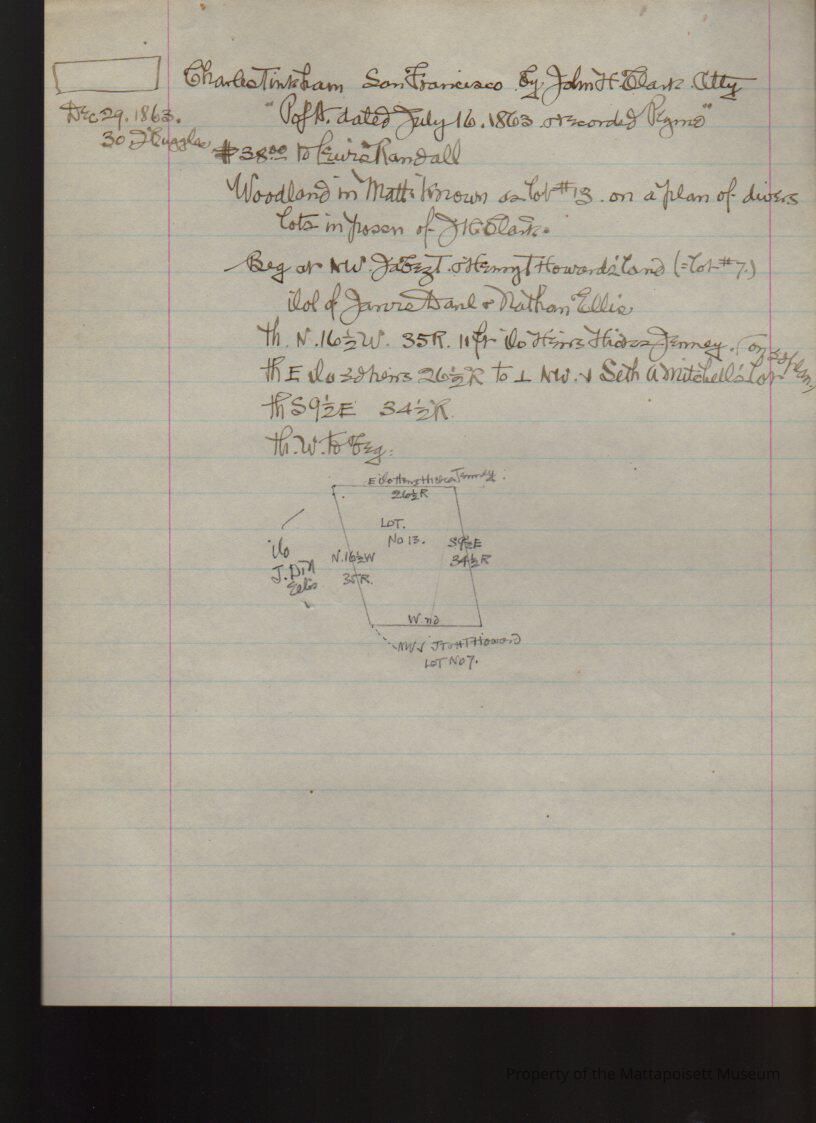 Charles Tinkham San Francisco by John H Clark Atty
Dec 29. 1863.
"P of A. dated July 16. 1863 & recorded Plymo"
30 J Ruggles
$38.00 to Lewis Randall
Woodland in Matt. known as lot #13. on a plan of divers
lots in possn of J H Clark.
Beg at NW. Jabez T. & Henry T Howards' land (= lot #7.)
ilo of Jarvis Danl & Nathan Ellis
th. N. 16½ W. 35R. 11 ft ilo Heirs Jenney.
th E ilo sd heirs 26½R to NW. Seth A Mitchell's lot
th S 9½ E 34½ R.
th. W. to beg.
E ilo Heirs Jenney.
26½ R
LOT.
No 13.
ilo
J. D & N
Ellis
N. 16½ W
35 R.
S 9½ E
34½ R
W.
NW J T & H T Howard
LOT No 7.
Property of the Mattapoisett Museum